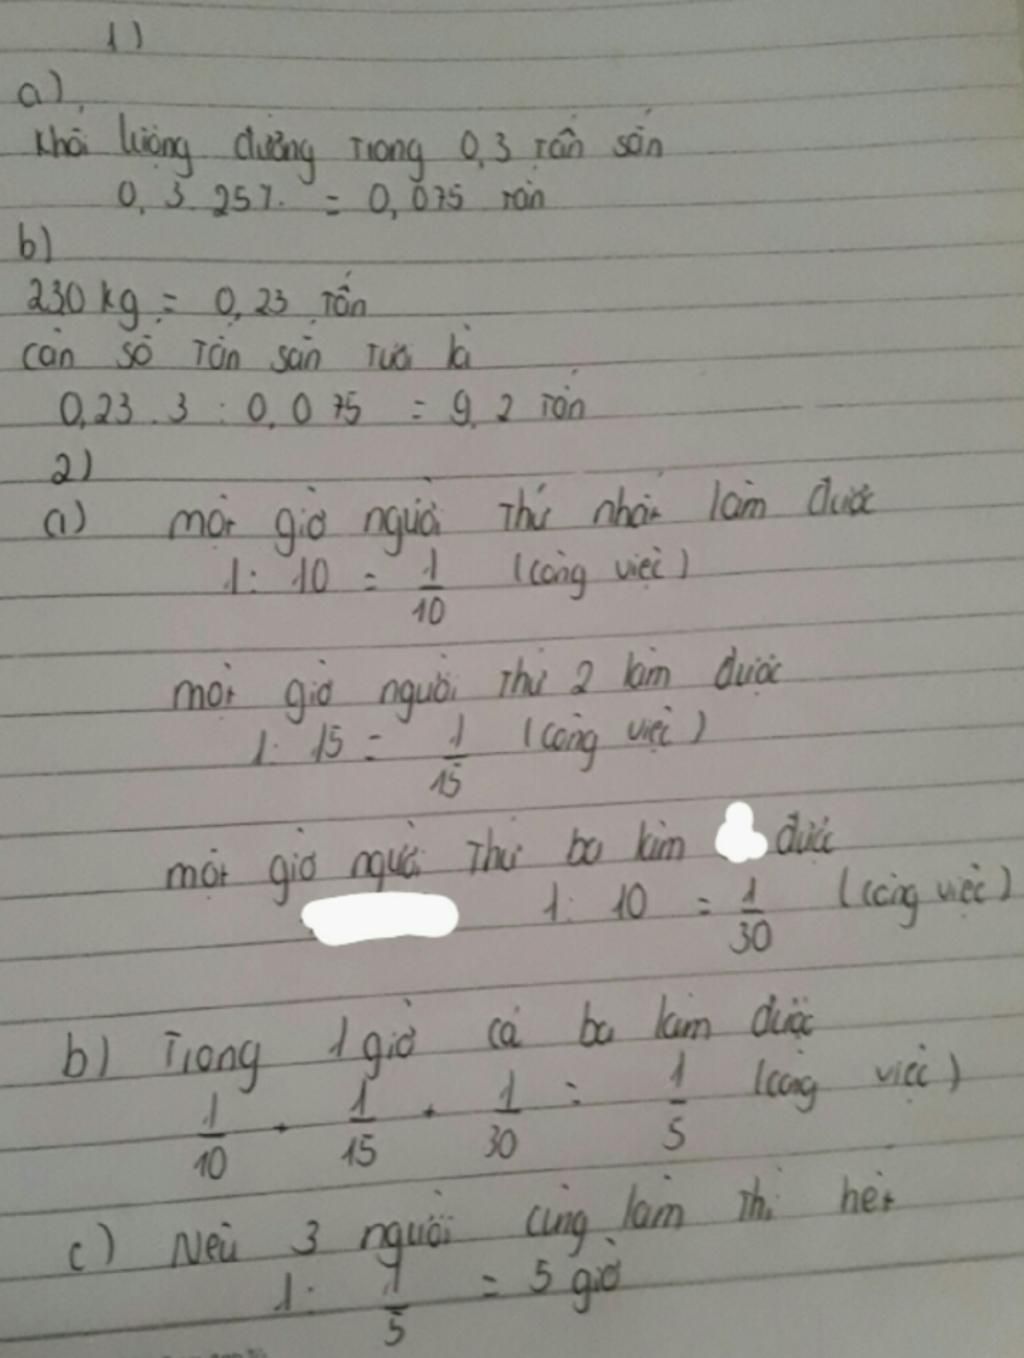 1)
a),
Khối lượng đường trong 0,3 tấn sắn
0,3.25% = 0,075 tấn
b)
230kg = 0,23 tấn
cần số tấn sắn tươi là
0,23.3:0,075 = 9,2 tấn
2)
a) một giờ người thứ nhất làm được
1: 10 = 1/10 (công việc)
một giờ người thứ 2 làm được
1: 15 = 1/15 (công việc)
một giờ người thứ ba làm được
1: 10 = 1/30 (công việc)
b) Trong 1 giờ cả ba làm được
1/10 + 1/15 + 1/30 = 1/5 (công việc)
c) Nếu 3 người cùng làm thì hết
1: 1/5 = 5 giờ